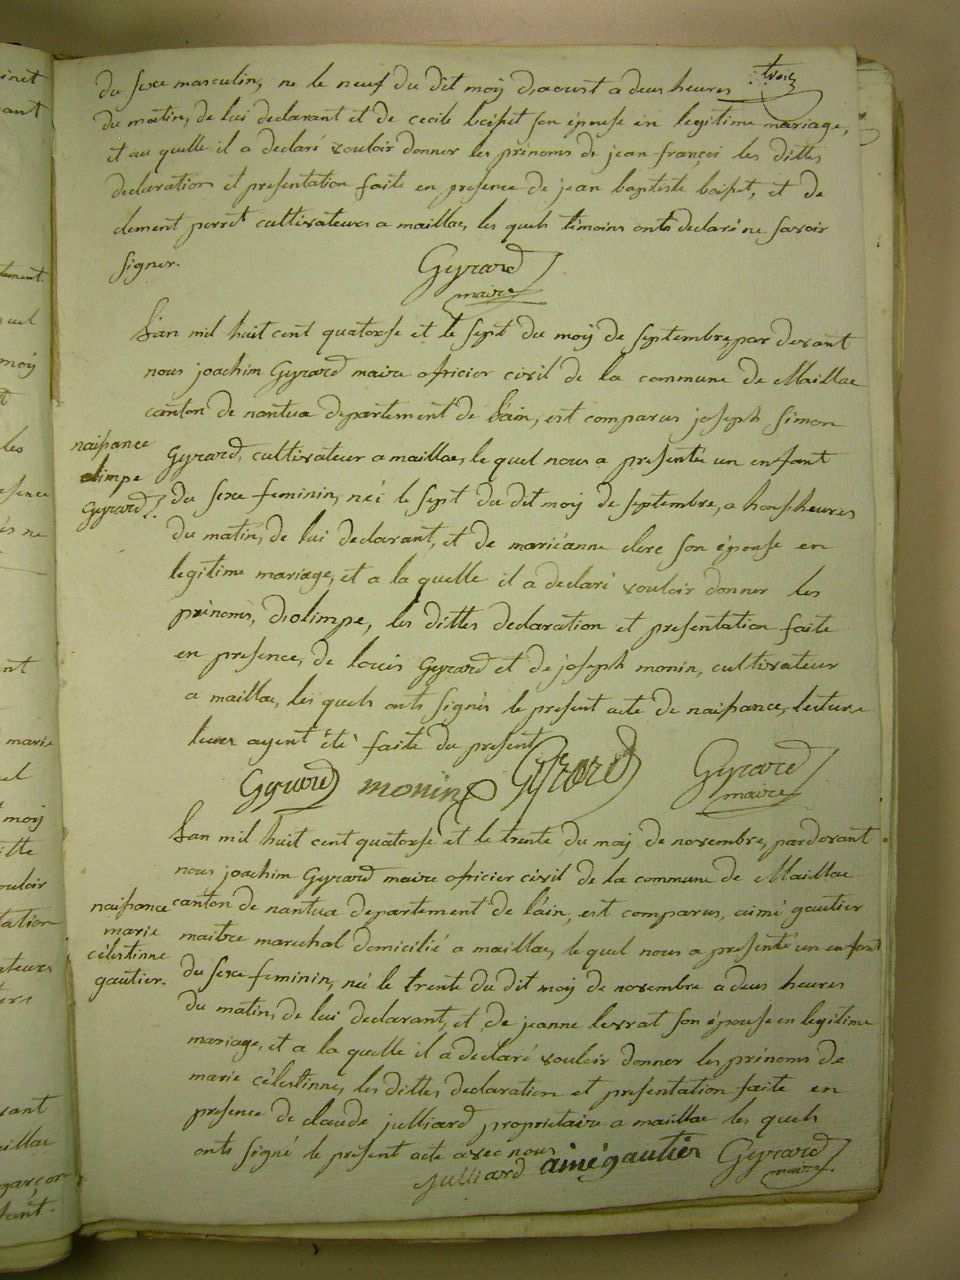 trois
du sexe masculin, ne le neuf du dit moÿ daoust a deus heures
du matin, de lui declarant et de cecile boisset son épouse en legitime mariage,
et au quelle il a declaré vouloir donner les prénoms de jean françoi les dittes
declaration et presentation faite en presence de jean baptiste boisset, et de
clement perret cultivateurs a maillac, les quels témoins onts declaré ne savoir
signer.
Gyrard
maire
L'an mil huit cent quatorse et le sept du moÿ de septembre par devant
nous joachim Gyrard maire oficier civil de la commune de Maillac
canton de nantua departement de l'ain, est comparus joseph simon
Gyrard, cultivateur a maillac, le quel nous a presenté un enfant
du sexe feminin, néi le sept du dit moÿ de septembre, a honse heures
du matin, de lui declarant, et de mariéanne clerc son épouse en
legitime mariage, et a la quelle il a declaré vouloir donner les
prénoms, diolimpe, les dittes declaration et presentation faite
en presence, de louis Gyrard et de joseph monin, cultivateur
a maillac, les quels onts signés le present acte de naissance, lecture
leurs ayent été faite du present
naissance
olimpe
Gyrard.
Gyrard monin Gyrard Gyrard
maire
L'an mil huit cent quatorse et le trente du moÿ de novembre, par devant
nous joachim Gyrard maire oficier civil de la commune de Maillac
canton de nantua departement de l'ain, est comparus, aimé gautier
maitre marechal domicilié a maillac, le quel nous a presenté un enfant
du sexe feminin, néi le trente du dit moÿ de novembre a deus heures
du matin, de lui declarant, et de jeanne levrat son épouse en legitime
mariage, et a la quelle il a declaré vouloir donner les prénoms de
marie célestinne, les dittes declaration et presentation faite en
presence de claude julliard proprietaire a maillac les quels
onts signé le présent acte avec nous
naissance
marie
célestinne
gautier.
Julliard aimé gautier Gyrard
maire